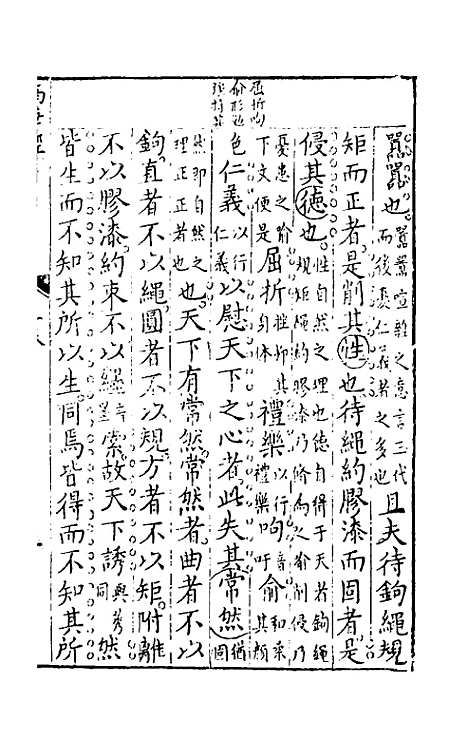 屈折呴
囂囂也囂囂喧雜之意言三代而後憂仁義者之多也且夫待鉤繩規
矩而正者是削其性也待繩約膠漆而固者是
侵其德也性自然之理也德自得于天者鉤繩規矩繩約膠漆乃脩為之喻削侵乃
憂患之喻下文便是屈折挫抑其身体禮樂以行禮樂呴音吁俞和柔其顏
色仁義以行仁義以慰天下之心者此失其常然猶固
然即自然之理正正者也也天下有常然常然者曲者不以
鉤直者不以繩圓者不以規方者不以矩附離
不以膠漆約束不以纆音墨索故天下誘與莠同然
皆生而不知其所以生同焉皆得而不知其所